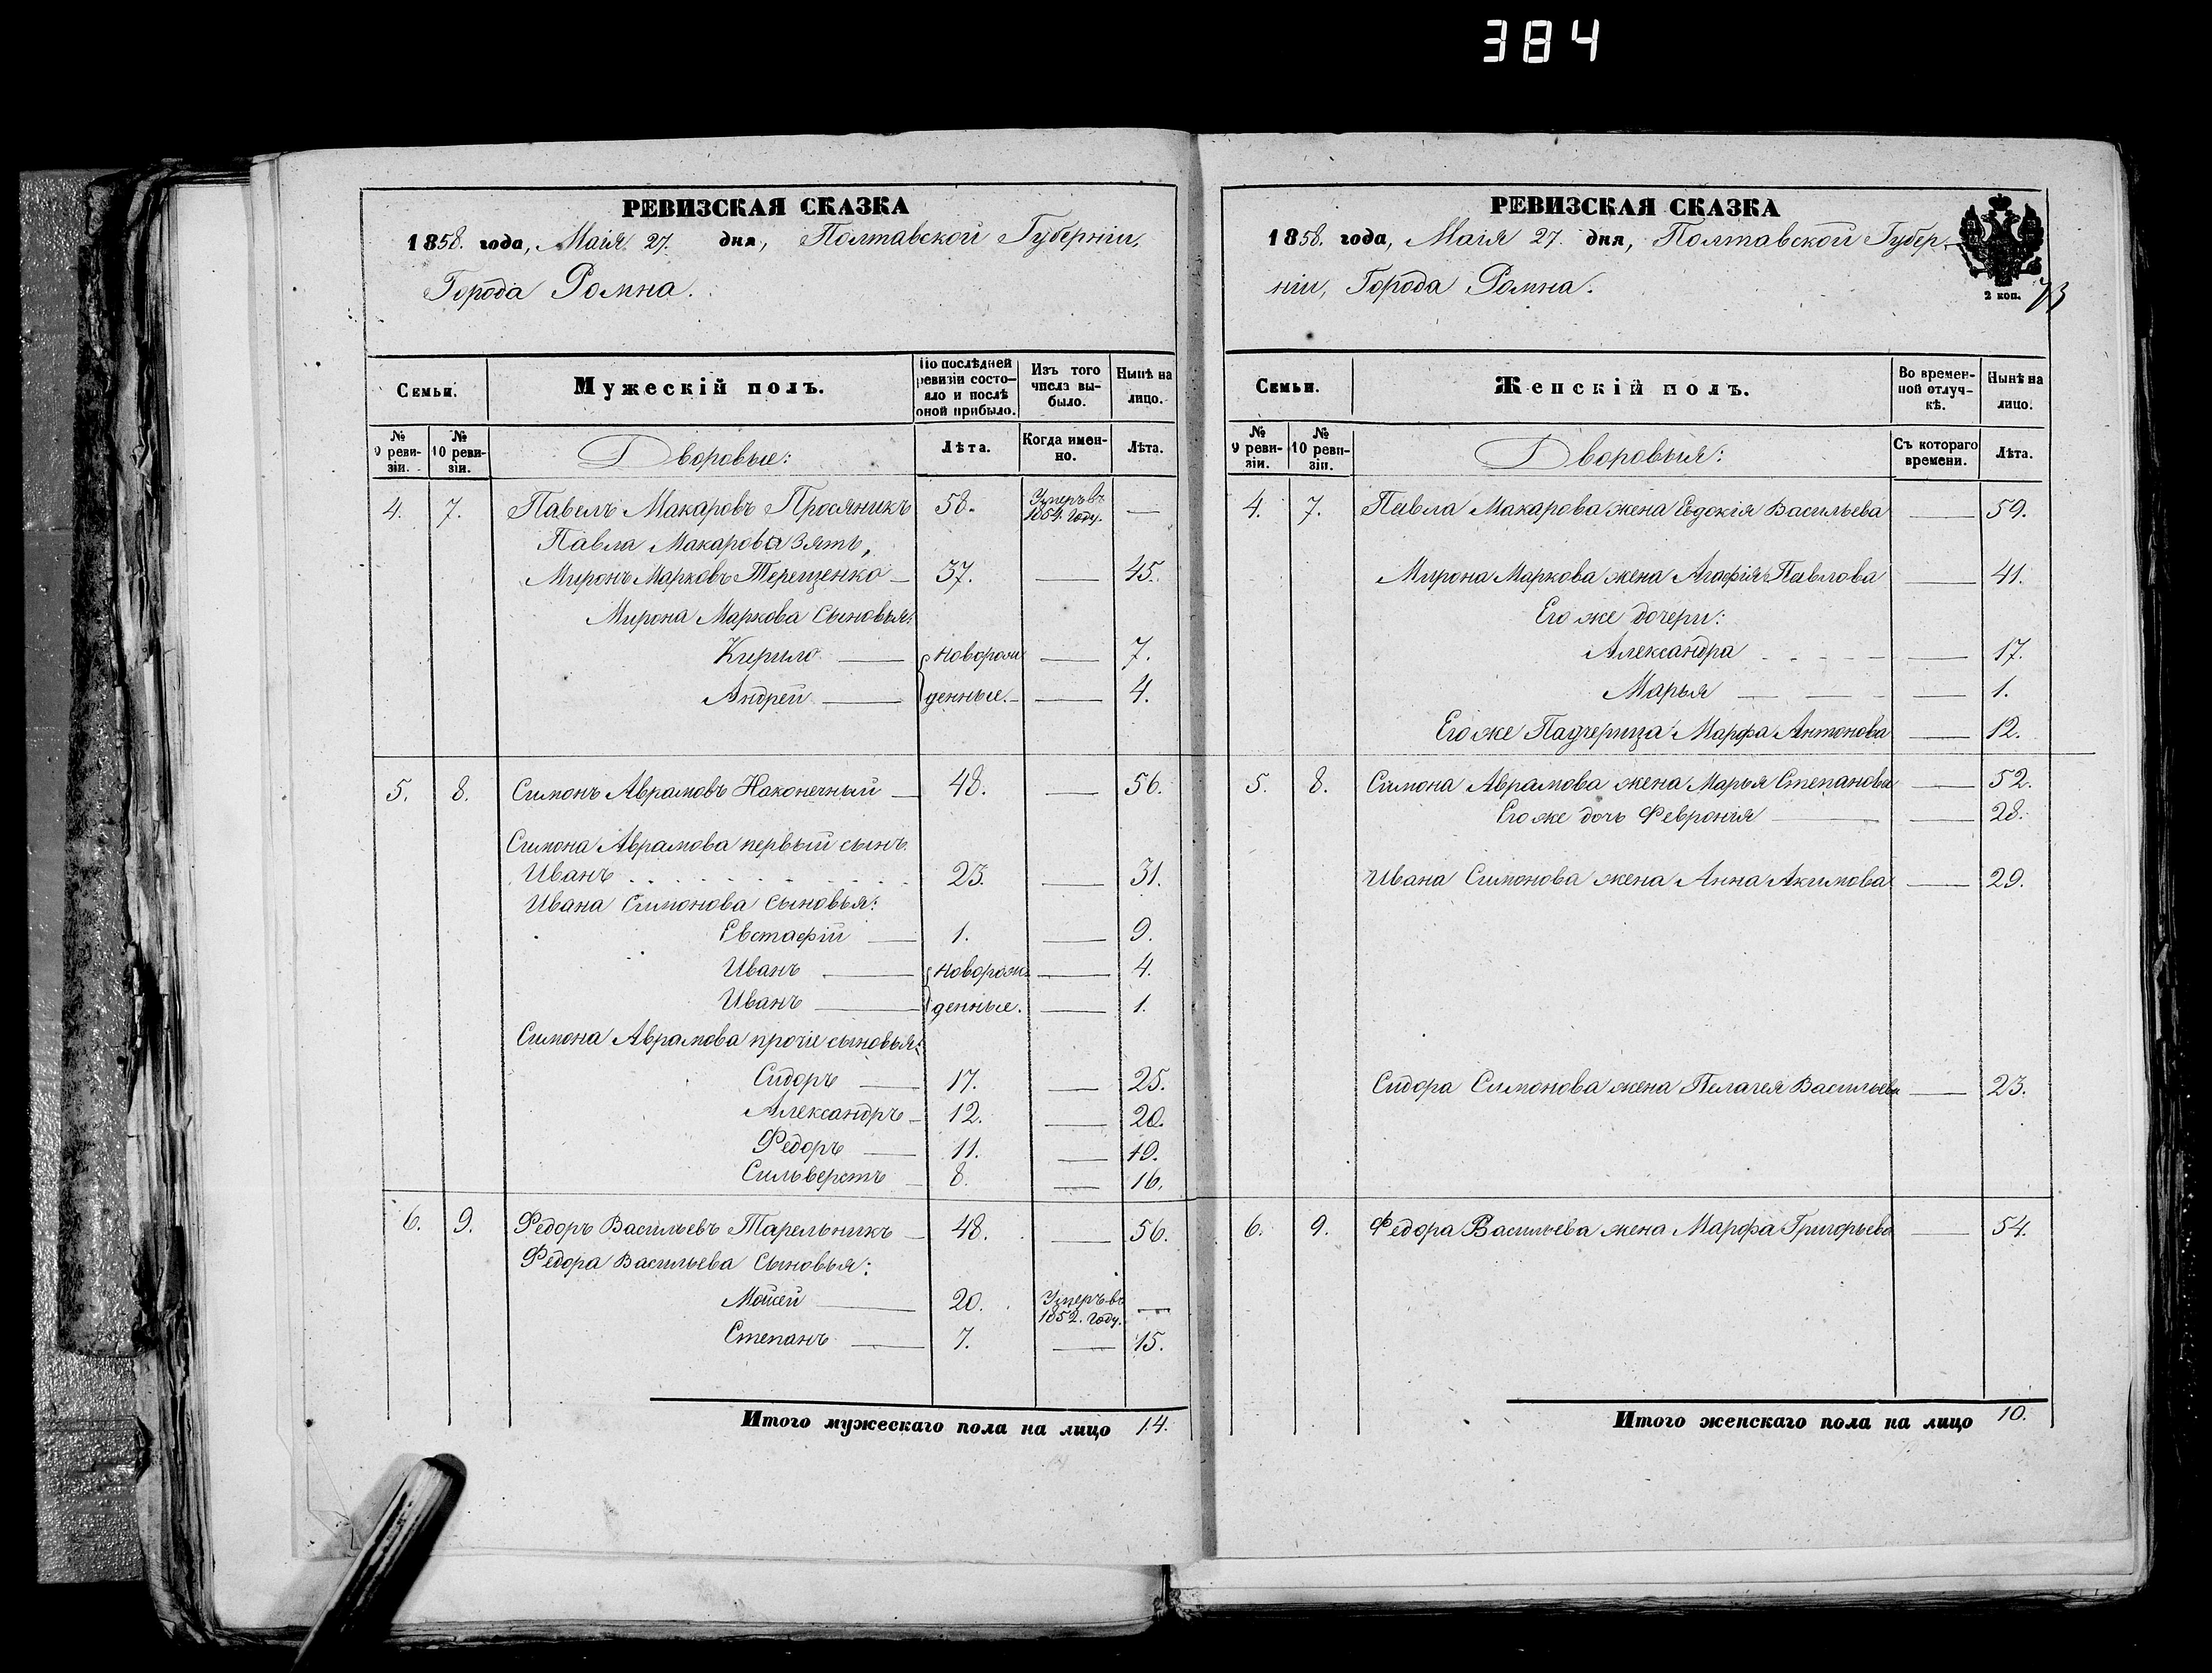 384
РЕВИЗСКАЯ СКАЗКА
1858. года, Маія 27. дня, Полтавской Губерніи,
Города Ромна.
Семьи.
Мужескій полъ.
По послѣдней ревизіи состояло и послѣ оной прибыло.
Изъ того числа выбыло.
Нынѣ на лицо.
№ 9 ревизіи.
№ 10 ревизіи.
Дворовые:
Лѣта.
Когда именно.
Лѣта.
4. 7. Павелъ Макаровъ Просяникъ 58. Умеръ въ 1854. году. —
Павла Макарова зять,
Миронъ Марковъ Терещенко — 37. — 45.
Мирона Маркова Сыновья:
Кирило — новорож — 7.
Андрей — денные. — — 4.
5. 8. Симонъ Аврамовъ Наконечный — 48. — 56.
Симона Аврамова первый сынъ
Иванъ . . . . . . . . . . 23. — 31.
Ивана Симонова Сыновья:
Евстафій — 1. — 9.
Иванъ — новорож — 4.
Иванъ — денные. — 1.
Симона Аврамова прочіе сыновья:
Сидоръ — 17. — 25.
Александръ — 12. — 20.
Федоръ — 11. — 19.
Сильверстъ — 8. — 16.
6. 9. Федоръ Васильевъ Тарельникъ — 48. — 56.
Федора Васильева Сыновья:
Мойсей — 20. Умеръ въ 1852. году. —
Степанъ — 7. — 15.
Итого мужескаго пола на лицо 14.
РЕВИЗСКАЯ СКАЗКА
1858. года, Маія 27. дня, Полтавской Губер-
ніи, Города Ромна.
2 коп.
73
Семьи.
Женскій полъ.
Во временной отлучкѣ.
Нынѣ на лицо.
№ 9 ревизіи.
№ 10 ревизіи.
Дворовыя:
Съ котораго времени.
Лѣта.
4. 7. Павла Макарова жена Евдокія Васильева — 59.
Мирона Маркова жена Агафія Павлова — 41.
Его же дочери:
Александра - - - - — 17.
Марья — — - — 1.
Его же Падчерица Марфа Антонова — 12.
5. 8. Симона Аврамова жена Марья Степанова — 52.
Его же дочь Февронія — — 28.
Ивана Симонова жена Анна Акимова — 29.
Сидора Симонова жена Пелагея Васильева — 23.
6. 9. Федора Васильева жена Марфа Григорьева — 54.
Итого женскаго пола на лицо 10.